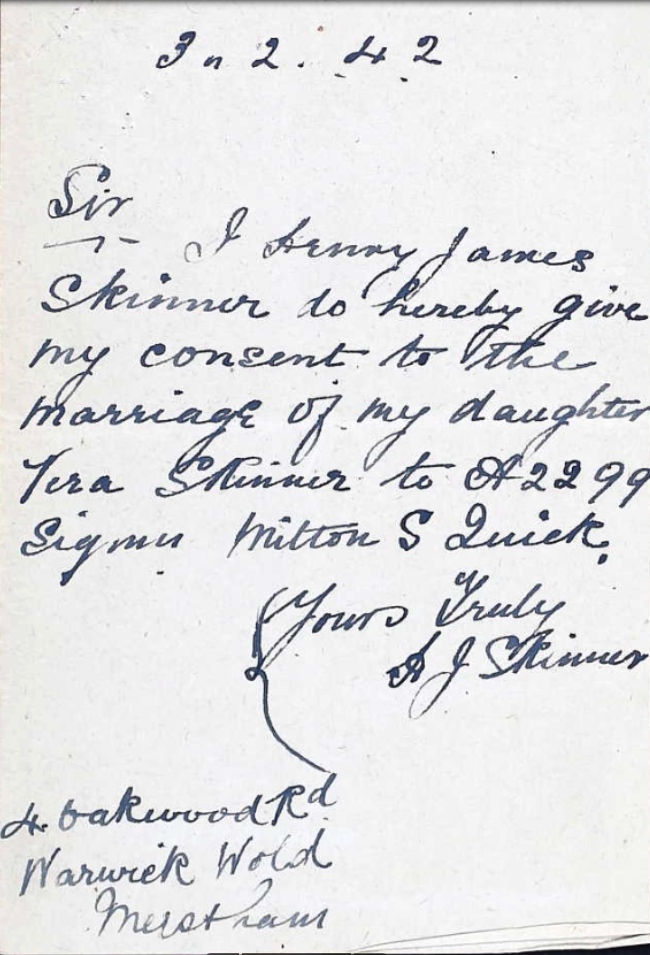 3 n 2. 42
Sir
I Henry James
Skinner do hereby give
my consent to the
marriage of my daughter
Vera Skinner to A2299
Sigmn Milton S Quick.
Yours Truly
H J Skinner
4. Oakwood Rd
Warwick Wold
Merstham